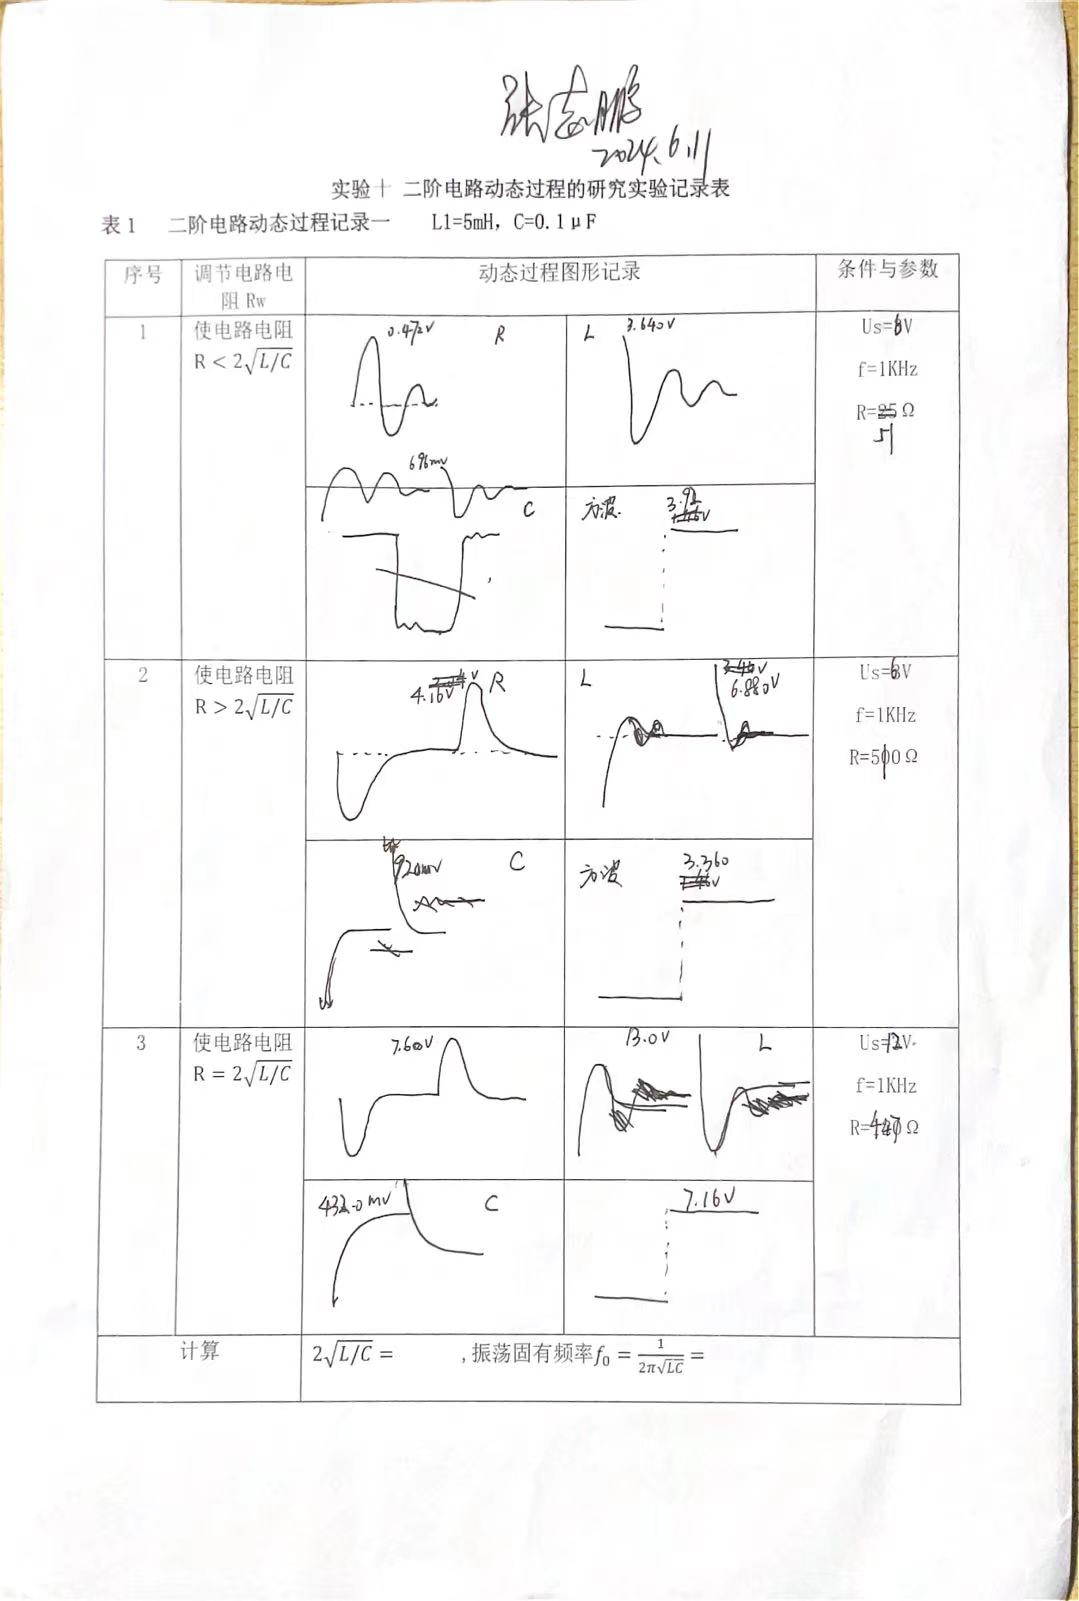 张志鹏
2024.6.11
实验十 二阶电路动态过程的研究实验记录表
表1 二阶电路动态过程记录一 L1=5mH, C=0.1μF
序号 调节电路电阻 Rw 动态过程图形记录 条件与参数
1 使电路电阻
R < 2√L/C
0.472V R L 3.640V
Us=6V
f=1KHz
R=25Ω
51
696mv C
方波. 3.92
2 使电路电阻
R > 2√L/C
4.16V R L 6.880V
Us=6V
f=1KHz
R=510Ω
920mv C
方波 3.360
3 使电路电阻
R = 2√L/C
7.60V 13.0V L
Us=12V.
f=1KHz
R=447Ω
432.0mV C
7.16V
计算 2√L/C = ,振荡固有频率f₀ = 1/2π√LC =